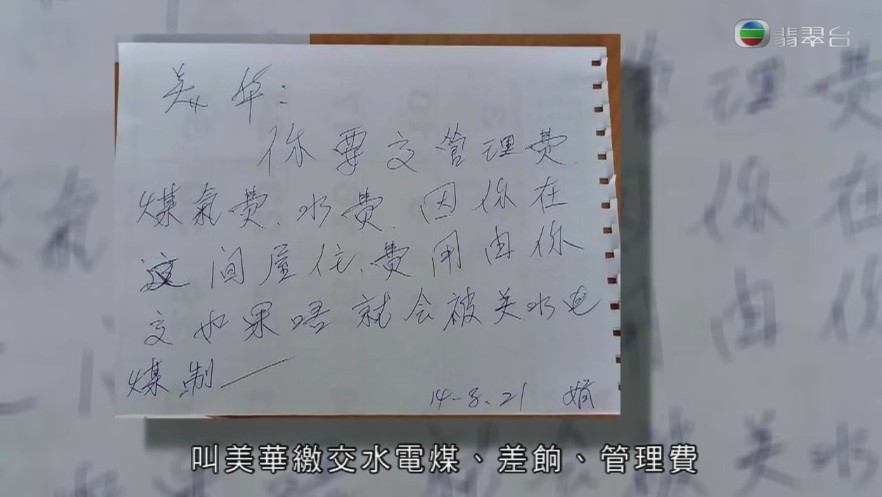 翡翠台
美华:
你要交管理费
煤氣費、水費、因你在
这间屋住、費用由你
交如果唔就会被关水电
煤制
14-8.21 娟
叫美華繳交水電煤、差餉、管理費